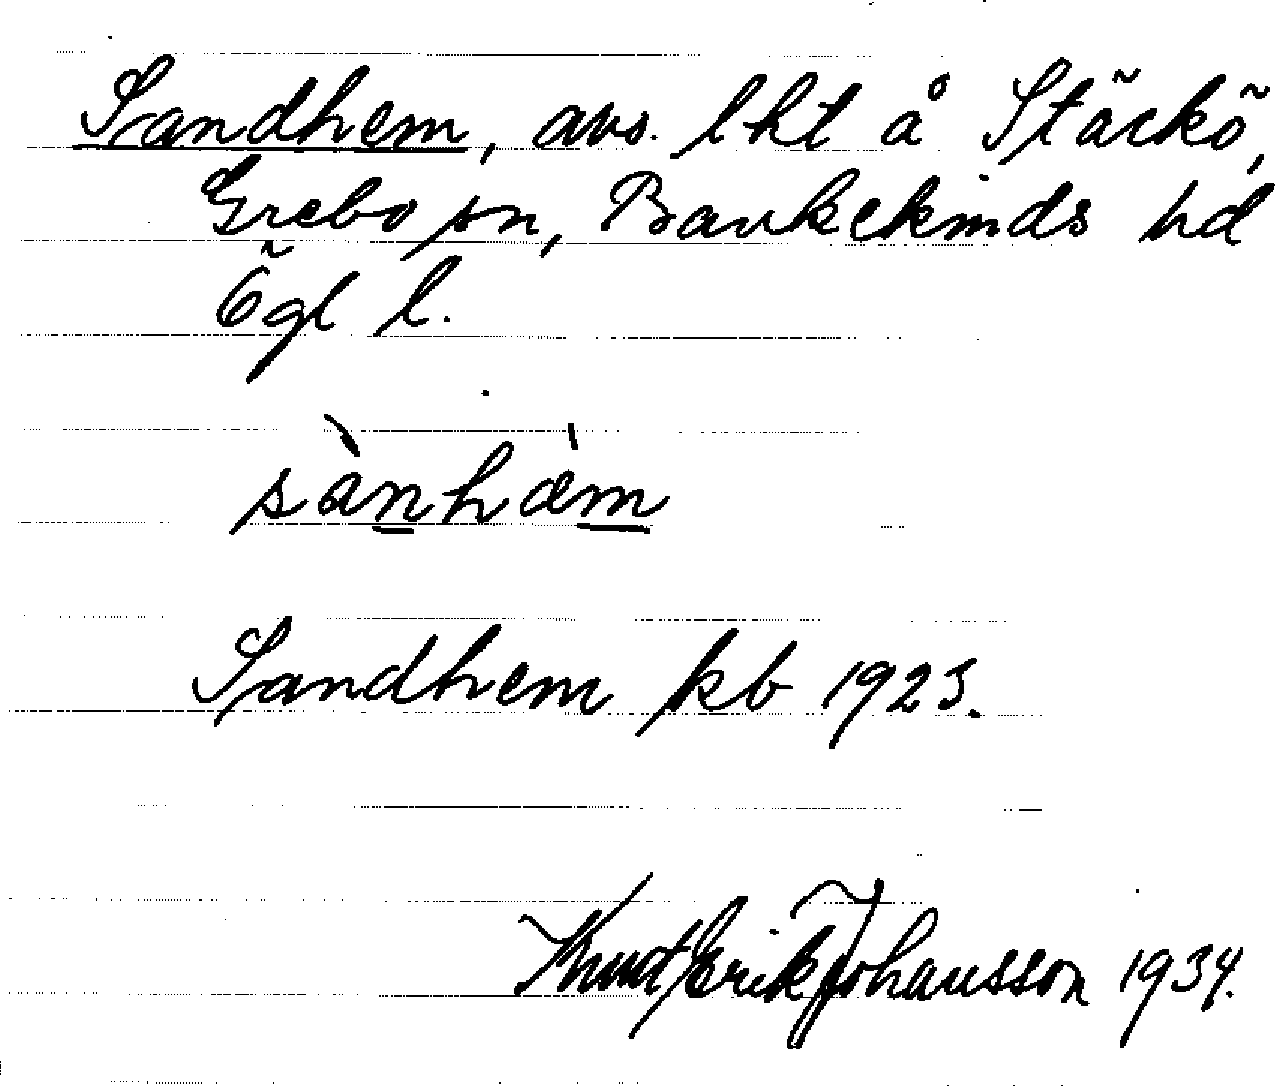 Sandhem, avs. lht å Stäckö,
Grebo sn, Bankekinds hd
Ögl l.
sànhæ̀m
Sandhem kb 1923.
Knut Erik Johansson 1934.